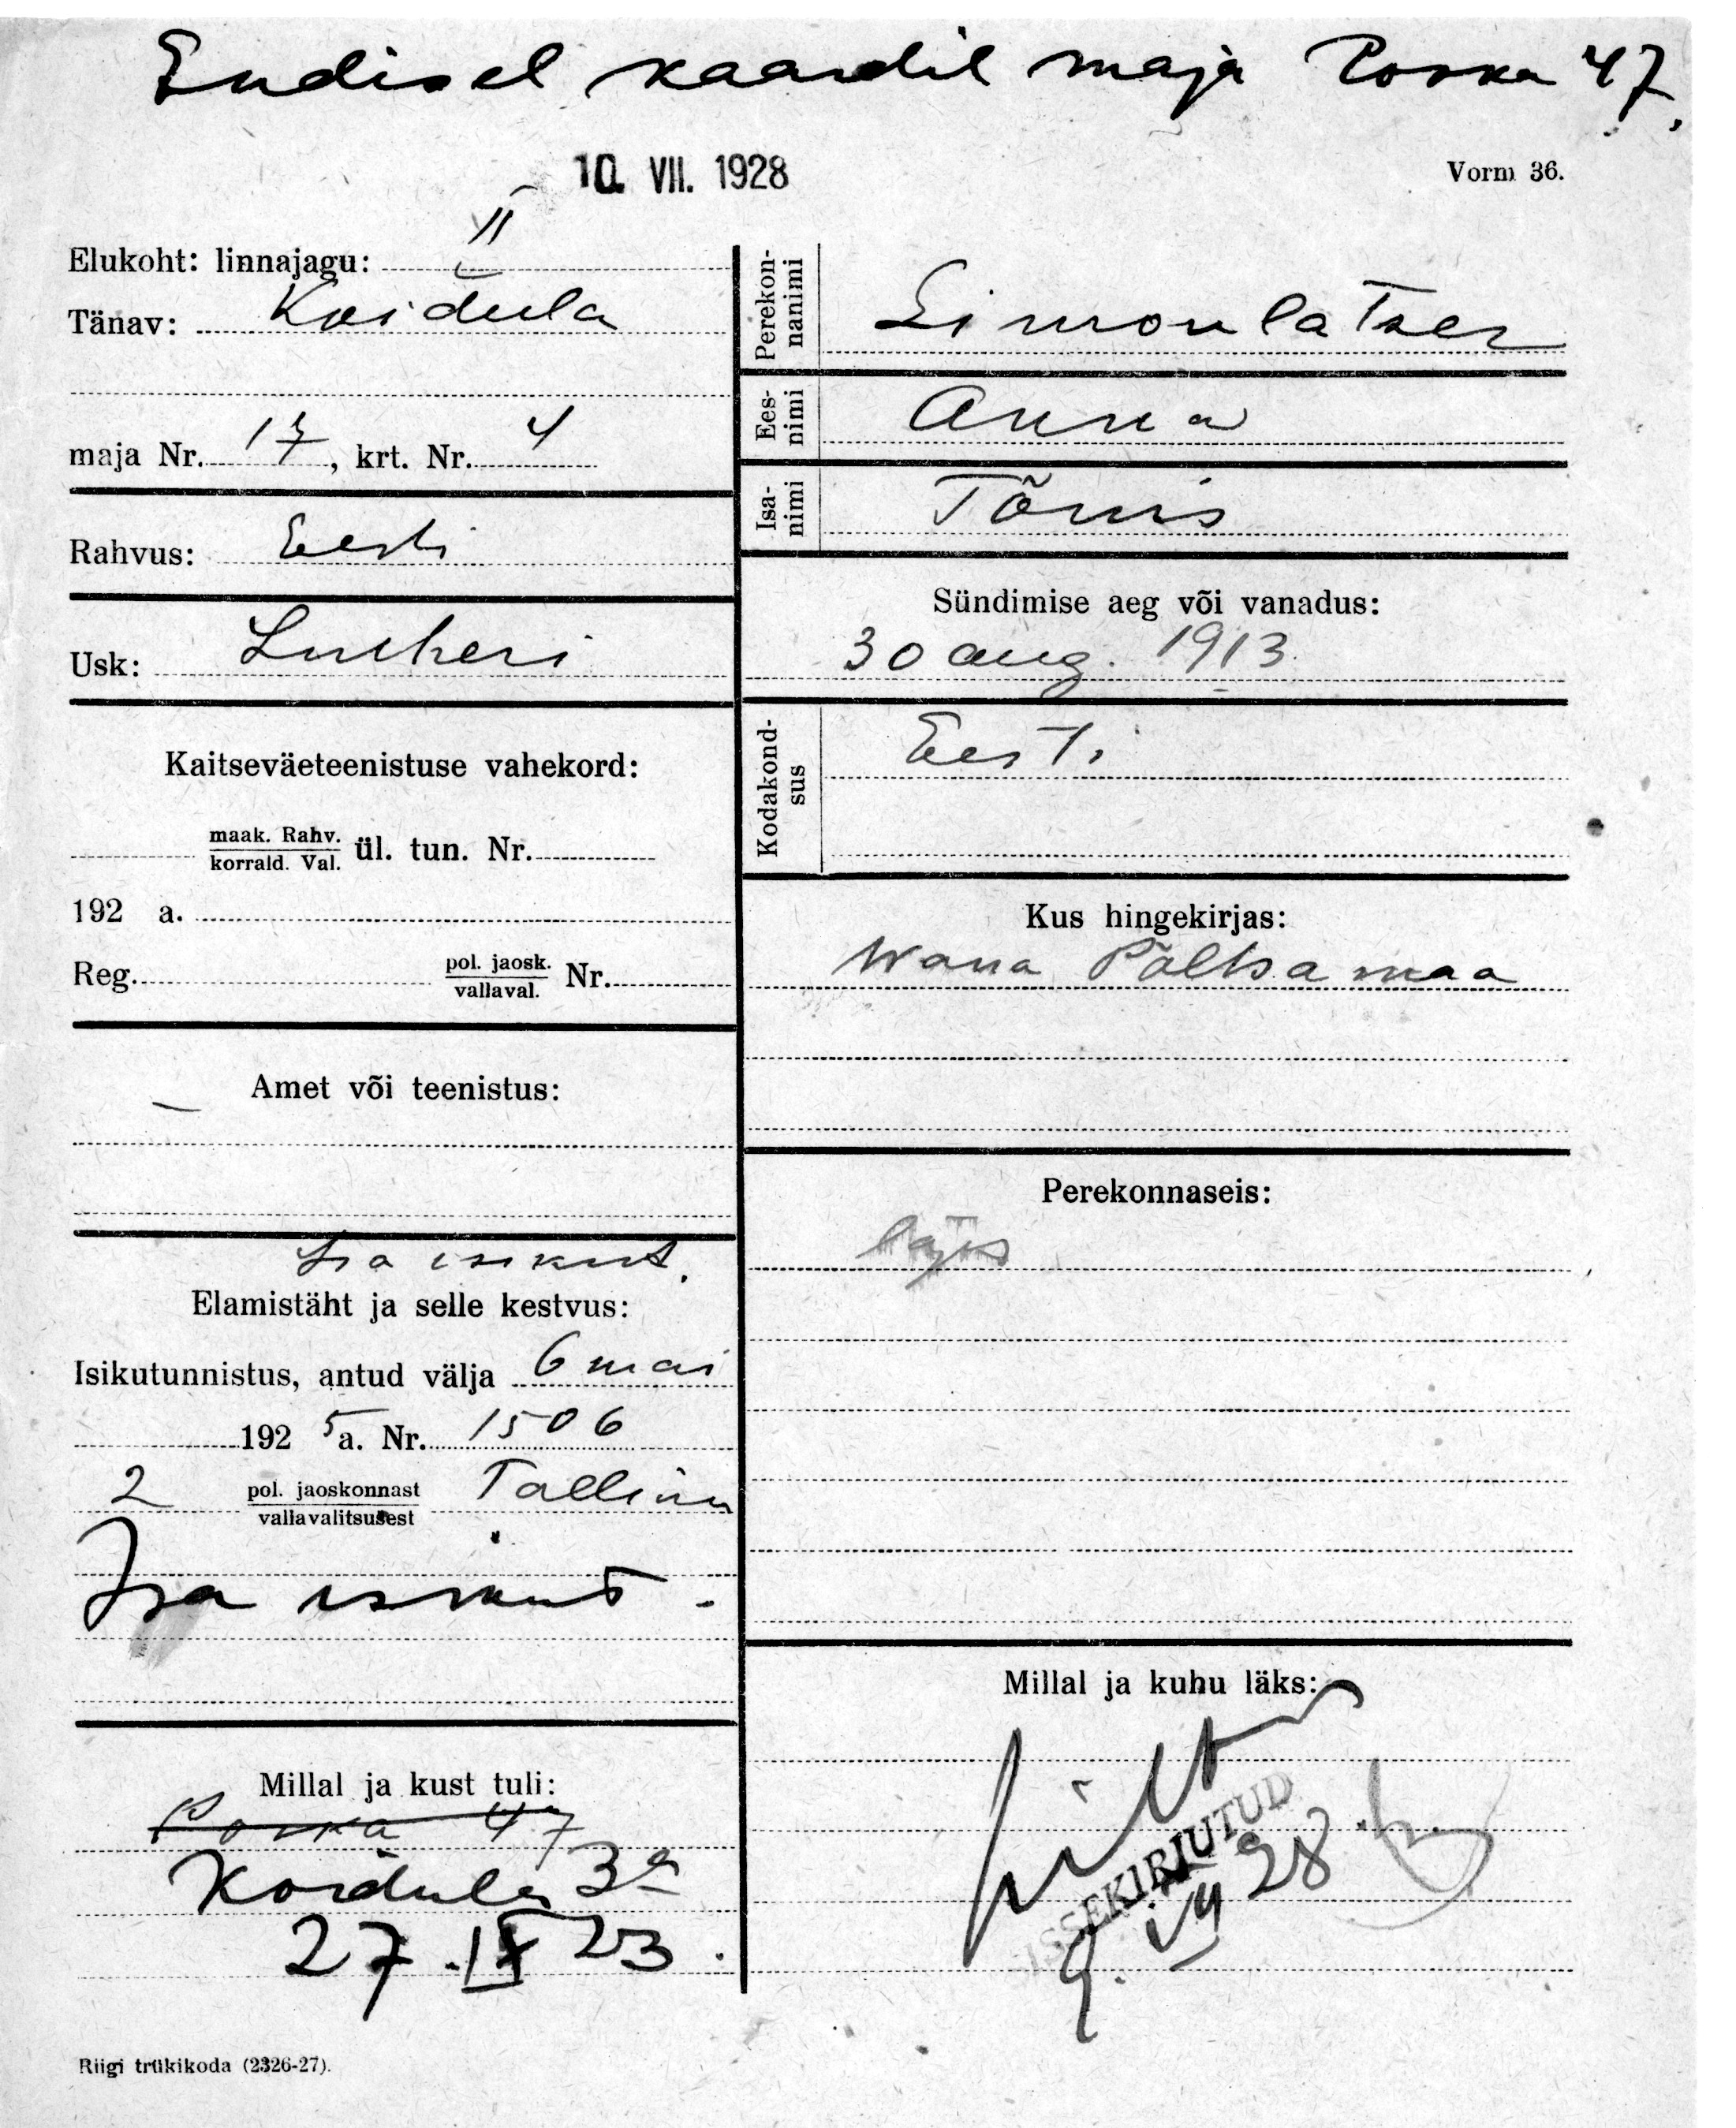 Endisel kaardil maja Poska 47.
10. VII. 1928
Vorm 36.
Elukoht: linnajagu: II
Tänav: Koidula
maja Nr. 17, krt. Nr. 4
Rahvus: Eesti
Usk: Lutheri
Kaitseväeteenistuse vahekord:
maak. Rahv.
korrald. Val. ül. tun. Nr.
192 a.
Reg. pol. jaosk.
vallaval. Nr.
Amet või teenistus:
—
Isa isikut.
Elamistäht ja selle kestvus:
Isikutunnistus, antud välja 6 mai
192 5 a. Nr. 1506
2 pol. jaoskonnast Tallinn
vallavalitsusest
Isa isikut.
Millal ja kust tuli:
Poska 47
Koidula 3a
27.IX 23.
Riigi trükikoda (2326-27).
Perekon-
nanimi
Ees-
nimi Anna
Isa-
nimi Tõnis
Sündimise aeg või vanadus:
30 aug. 1913
Kodakond-
sus Eesti
Kus hingekirjas:
Wana Põltsamaa
Perekonnaseis:
Millal ja kuhu läks:
SISSEKIRJUTUD
9. 28.